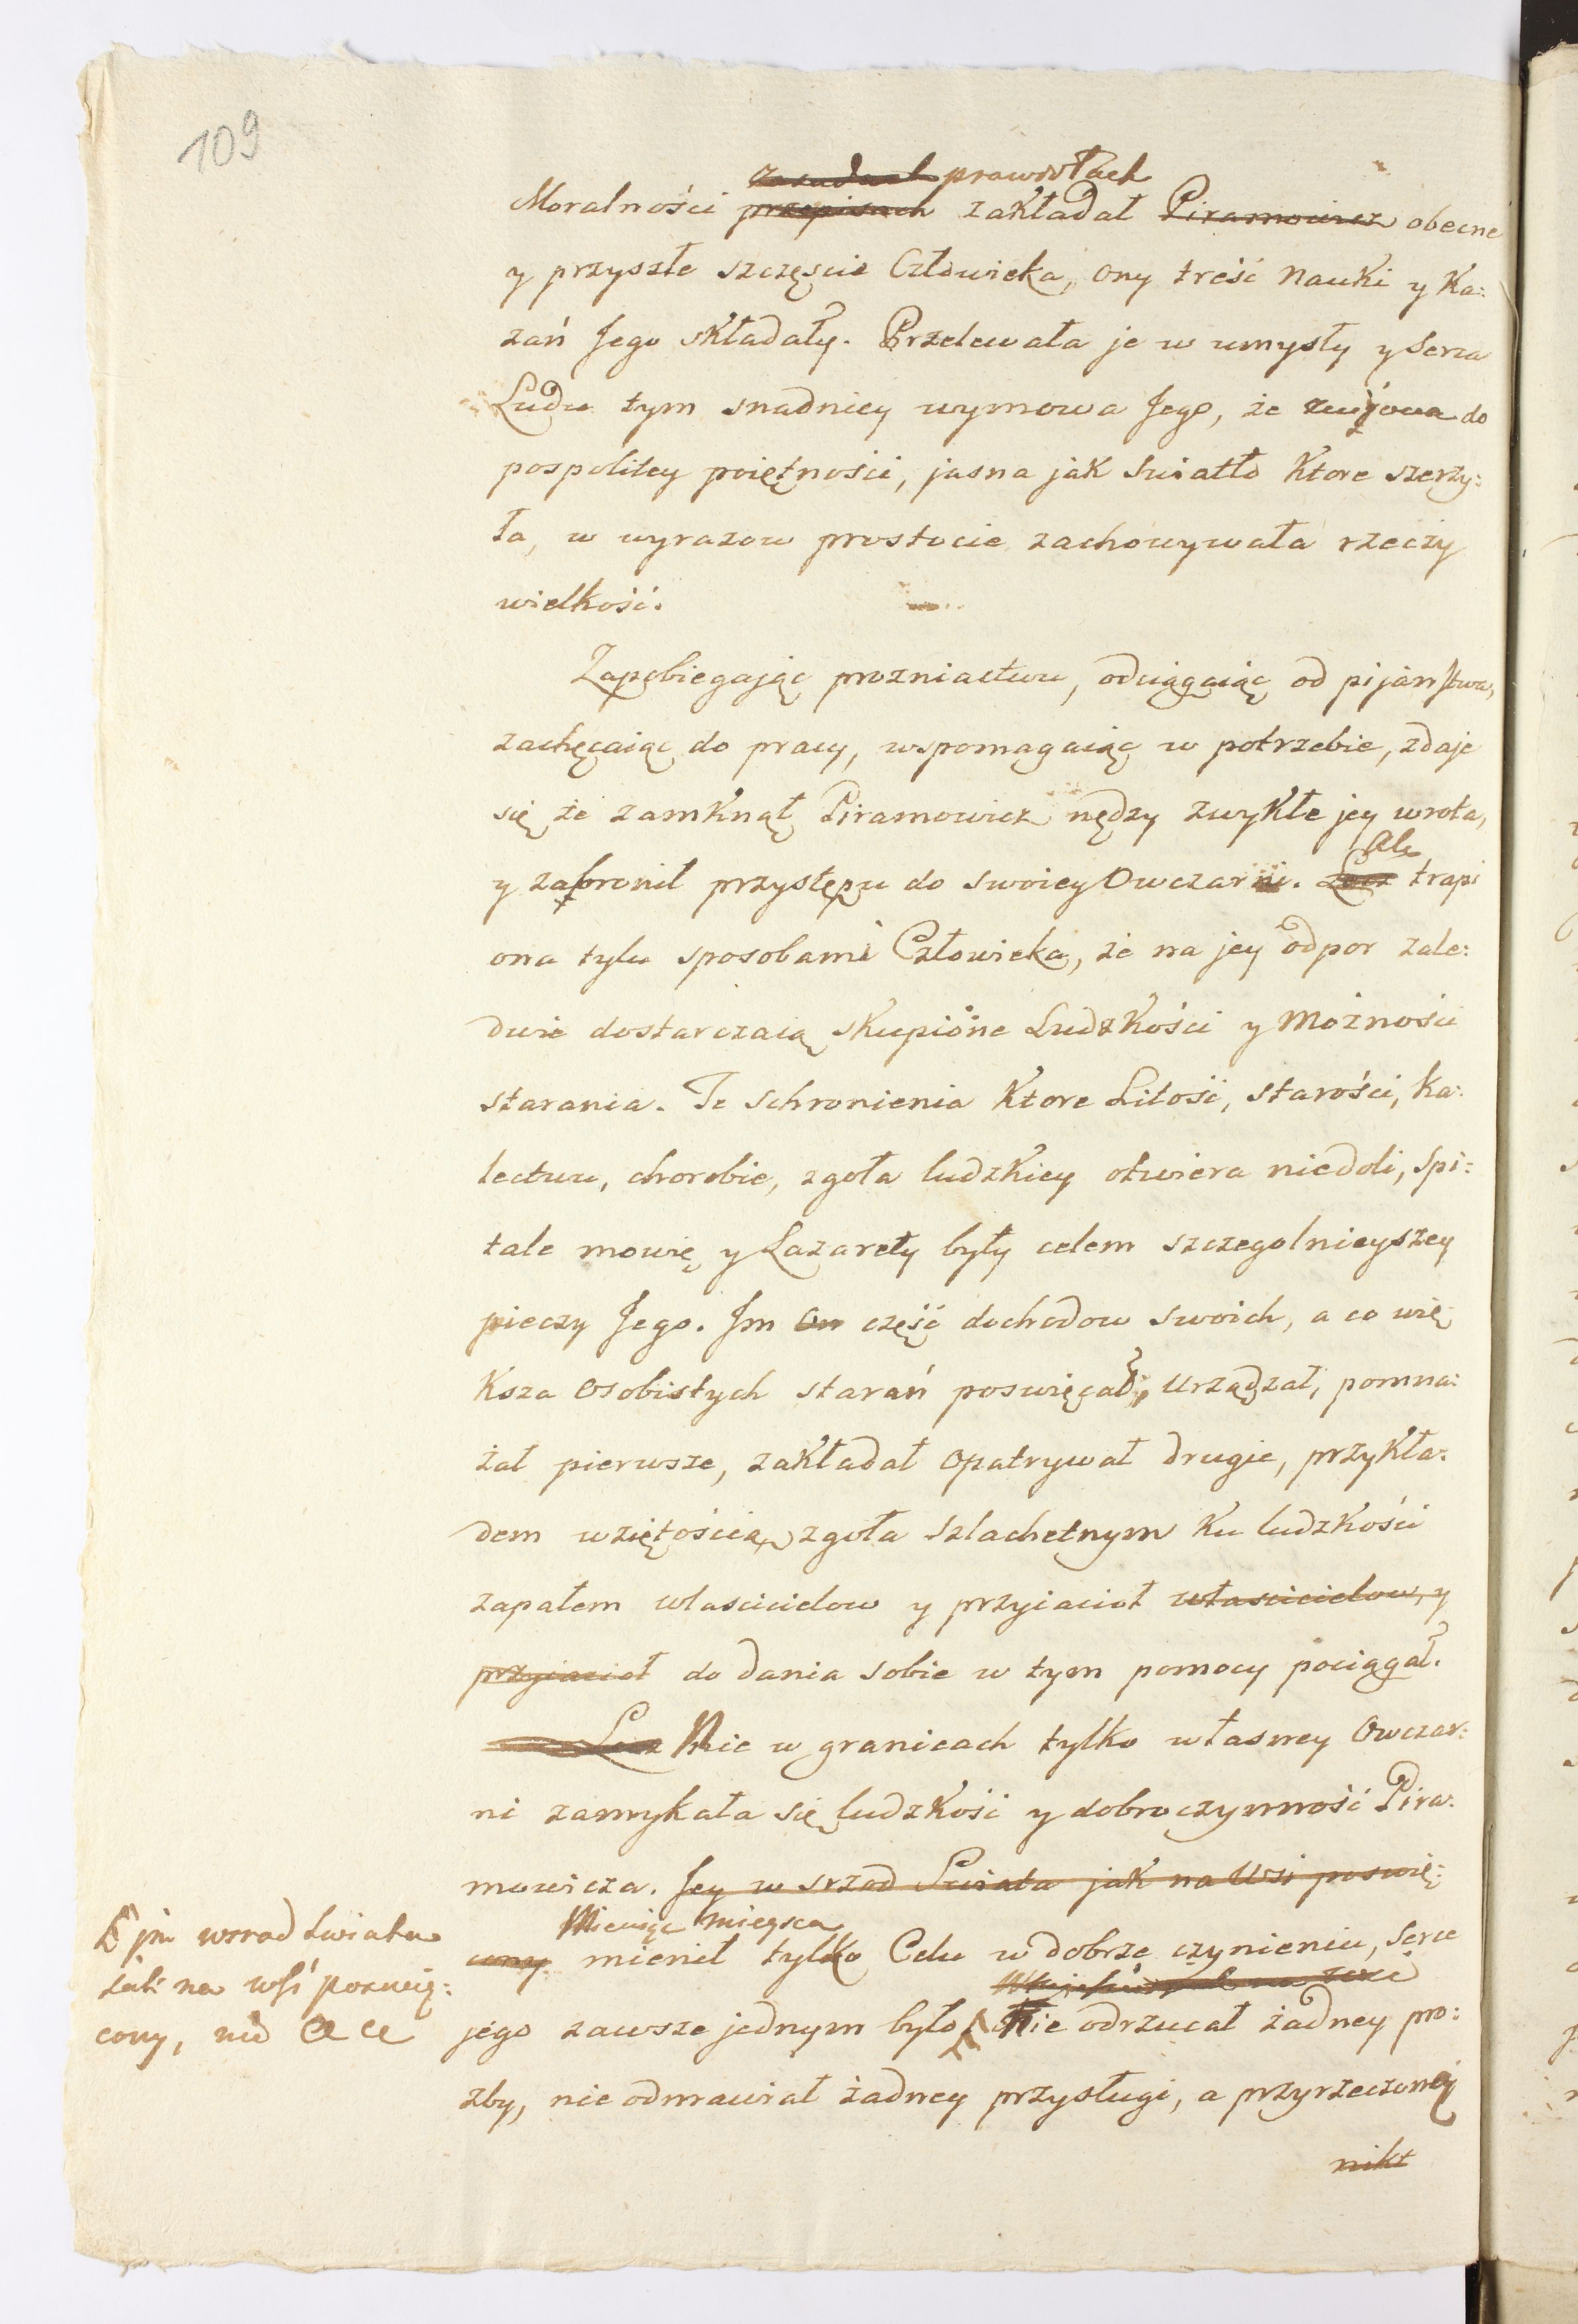 109
zasadach prawidłach
Moralności przepisach zakładał Piramowicz obecne
y przyszłe szczęscie Człowieka, ony treść Nauki y Ka:
zań Jego składały. Przelewała je w umysły y serca
Ludu tym snadniey wymowa Jego, że do
pospolitey poiętności, jasna jak Swiatło Ktore szerzy:
ła, w wyrazow prostocie zachowywała rzeczy
wielkość.
Zapobiegając prozniactwu, odciągaiąc od pijaństwa,
zachęcaiąc do pracy, wspomagaiąc w potrzebie, zdaje
się że zamknął Piramowicz nędzy zwykłe jey wrota,
Ale
y zabronił przystępu do swoiey Owczarni. Lecz trapi
ona tylu sposobami Człowieka, że na jey odpor zale:
dwie dostarczaią skupione Ludzkości y Możności
starania. Te schronienia Ktore Litość, starości, ka:
lectwu, chorobie, zgoła ludzkiey otwiera niedoli, Spi:
tale mowię y Lazarety były celem szczegolnieyszey
pieczy Jego. Im On część dochodow swoich, a co wię
Ksza Osobistych starań poswięcał, Urządzał, pomna:
żał pierwsze, zakładał opatrywał drugie, przykła:
dem wziętością, zgoła szlachetnym Ku ludzkości
zapałem wlascicielow y przyiacioł własciciełow, y
przyiacioł do dania sobie w tym pomocy pociągał.
Lecz Nie w granicach tylko własney Owczar:
ni zamykała się ludzkość y dobroczynność Pira:
mowicza. Jey w srzod Swiata jak na Wsi poswię:
Mieniąc miejsca
cony mienił tylko Celu w dobrze czynieniu, Serce
jego zawsze jednym było Nie odrzucał żadney pro:
zby, nie odmawiał żadney przysługi, a przyrzeczoney
nikt
jm wsrod Swiata
jak na wsi poswię:
cony, nie